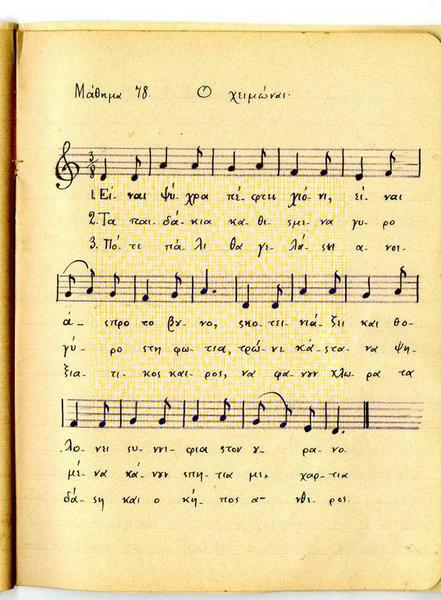 Μάθημα 48. Ο χειμώνας.
3 8
1. Εί- ναι ψύ- χρα πέ- φτει χιό- νι, εί- ναι
2. Τα παι- δά- κια κα- θι- σμε- να γυ- ρο
3. Πό- τε πά- λι θα γε- λά- ση α- νοι-
ά- σπρο το βου- νο, σκο- τει- νιά- ζει και θο-
γύ- ρο στη φω- τια, τρώ- νε κά- στα- να ψη-
ξια- τι- κος και- ρος, να φα- νουν χλω- ρα τα
λο- νει συν- νε- φια στον ου- ρα- νο.
μέ- να κά- νουν σπη- τια με χαρ- τια
δά- ση και ο κή- πος α- νθε- ρος.